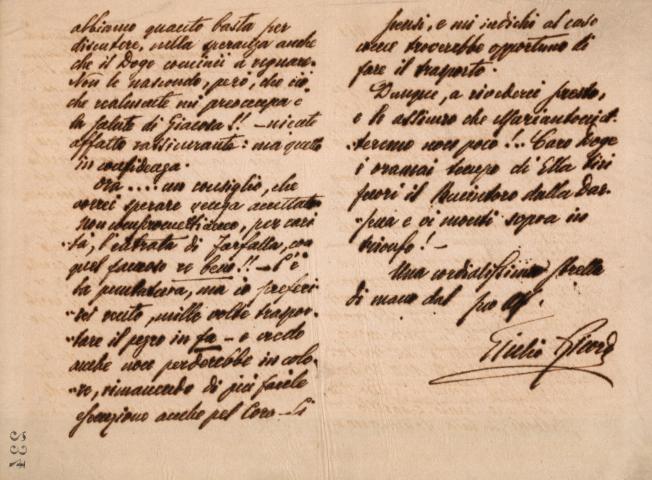 abbiamo quanto basta per
discutere, nella speranza anche
che il Doge cominci a regnare.
Non le nascondo, però, che ciò
che realmente mi preoccupa è
la salute di Giacosa!! - niente
affatto rassicurante: ma questo
in confidenza.
Ora .... un consiglio, che
vorrei sperare venga accettato
Non compromettiamo, per cari
-tà, l'entrata di farfalla, con
quel famoso re bem!! - C'è
la puntatura, ma io preferi
rei cento, mille volte traspor-
tare il pezzo in fa - e credo
anche non perderebbe in colo-
re, rimanendo di più facile
esecuzione anche pel Coro - Ci
pensi, e mi indichi al caso
come troverebbe opportuno di
fare il trasporto.
Dunque, a rivederci presto,
e le assicuro che
-teremo non poco!.. Caro Doge
è oramai tempo di Ella tiri
fuori il Bucintoro dalla Dar-
sena e vi monti sopra in
trionfo! -
Una cordialissima stretta
di mano dal suo aff.
Giulio Ricordi
334